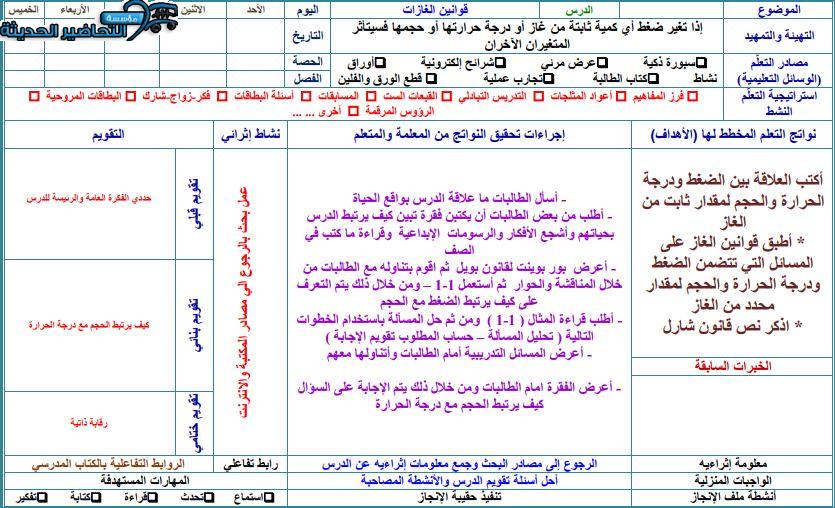 الموضوع
الدرس
قوانين الغازات
اليوم
الأحد
الاثنين
الأربعاء
الخميس
مؤسسة
التحاضير الحديثة
التهيئة والتمهيد
إذا تغير ضغط أي كمية ثابتة من غاز أو درجة حرارتها أو حجمها فسيتأثر
المتغيران الآخران
التاريخ
مصادر التعلّم
(الوسائل التعليمية)
❑سبورة ذكية ❑عرض مرئي ❑شرائح إلكترونية ❑أوراق
نشاط ❑كتاب الطالبة ❑تجارب عملية ❑ قطع الورق والفلين
الحصة
الفصل
استراتيجية التعلّم
النشط
□ فرز المفاهيم □ أعواد المثلجات □ التدريس التبادلي □ القبعات الست □ المسابقات □ أسئلة البطاقات □ فكر-زواج-شارك □ البطاقات المروحية □
الرؤوس المرقمة □ أخرى ... ...
نواتج التعلم المخطط لها (الأهداف)
إجراءات تحقيق النواتج من المعلمة والمتعلم
نشاط إثرائي
التقويم
أكتب العلاقة بين الضغط ودرجة
الحرارة والحجم لمقدار ثابت من
الغاز
* أطبق قوانين الغاز على
المسائل التي تتضمن الضغط
ودرجة الحرارة والحجم لمقدار
محدد من الغاز
* اذكر نص قانون شارل
الخبرات السابقة
- أسأل الطالبات ما علاقة الدرس بواقع الحياة
- أطلب من بعض الطالبات أن يكتبن فقرة تبين كيف يرتبط الدرس
بحياتهم وأشجع الأفكار والرسومات الإبداعية وقراءة ما كتب في
الصف
- أعرض بور بوينت لقانون بويل ثم اقوم بتناوله مع الطالبات من
خلال المناقشة والحوار ثم أستعمل 1-1 – ومن خلال ذلك يتم التعرف
على كيف يرتبط الضغط مع الحجم
- أطلب قراءة المثال ( 1-1 ) ومن ثم حل المسألة باستخدام الخطوات
التالية ( تحليل المسألة – حساب المطلوب تقويم الإجابة )
- أعرض المسائل التدريبية أمام الطالبات وأتناولها معهم
- أعرض الفقرة امام الطالبات ومن خلال ذلك يتم الإجابة على السؤال
كيف يرتبط الحجم مع درجة الحرارة
عمل بحث بالرجوع الي مصادر المكتبة والانترنت
تقويم قبلي
حددي الفكرة العامة والرئيسة للدرس
تقويم بنائي
كيف يرتبط الحجم مع درجة الحرارة
تقويم ختامي
رقابة ذاتية
معلومة إثراءيه
الرجوع إلى مصادر البحث وجمع معلومات إثراءيه عن الدرس
رابط تفاعلي
الروابط التفاعلية بالكتاب المدرسي
الواجبات المنزلية
أحل أسئلة تقويم الدرس والأنشطة المصاحبة
المهارات المستهدفة
أنشطة ملف الإنجاز
تنفيذ حقيبة الإنجاز
❑استماع ❑تحدث ❑قراءة ❑كتابة ❑تفكير